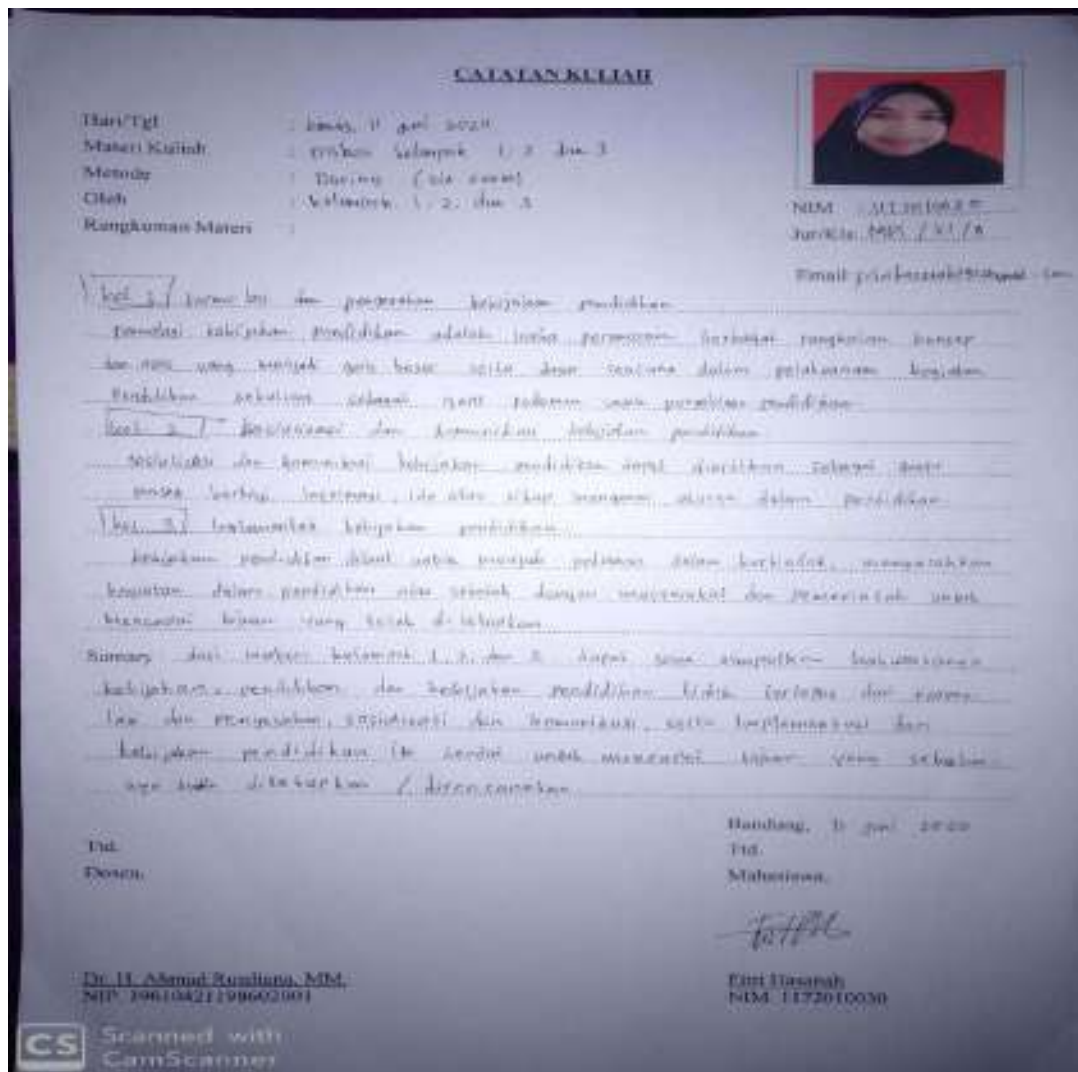 CATATAN KULIAH
Hari/Tgl : Kamis, 11 juni 2020
Materi Kuliah : kelompok 1, 2 dan 3
Metode : Daring (via zoom)
Oleh : kelompok 1, 2, dan 3
Rangkuman Materi :
NIM : 1172010030
Jur/Kls: MPI / VI / A
Email:
kel 1 formulasi dan pengesahan kebijakan pendidikan
formulasi kebijakan pendidikan adalah perumusan berbagai rangkaian konsep
dan asas yang menjadi garis besar serta dasar rencana dalam pelaksanaan kegiatan
pendidikan sekaligus sebagai pedoman pendidikan
kel 2 Sosialisasi dan komunikasi kebijakan pendidikan
sosialisasi dan komunikasi kebijakan pendidikan dapat diartikan sebagai suatu
proses berbagi informasi, ide atau sikap mengenai dalam pendidikan
kel. 3 implementasi kebijakan pendidikan
kebijakan pendidikan dibuat untuk menjadi pedoman dalam bertindak, mengarahkan
kegiatan dalam pendidikan atau sekolah dengan masyarakat dan pemerintah untuk
mencapai tujuan yang telah ditetapkan
Sumary dari materi kelompok 1, 2, dan 3 dapat saya simpulkan
kebijakan pendidikan dan kebijakan pendidikan tidak dari
dan pengesahan, sosialisasi dan komunikasi, serta implementasi dari
kebijakan pendidikan itu sendiri untuk mencapai tujuan yang sebelum
nya sudah ditetapkan / direncanakan
Bandung, 11 juni 2020
Ttd. Ttd.
Dosen, Mahasiswa,
Dr. H. A. Rusdiana, MM. Fitri Hasanah
NIP. 196104211986021001 NIM. 1172010030
CS Scanned with
CamScanner